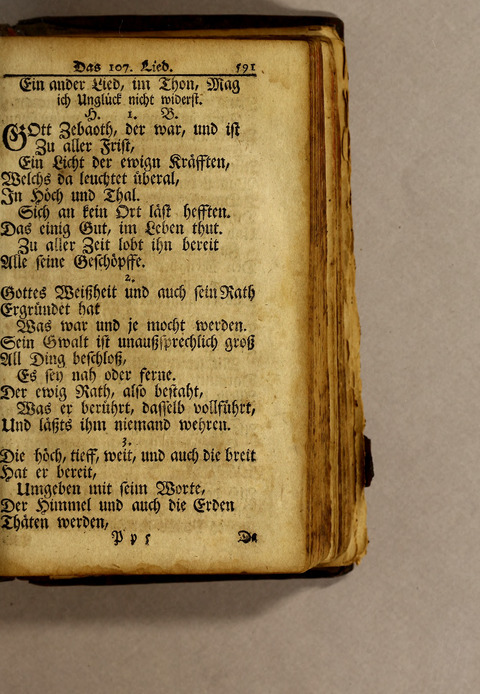 Das 107. Lied. 591
Ein ander Lied, im Thon, Mag
ich Unglück nicht widerst.
H. 1. B.
GOtt Zebaoth, der war, und ist
Zu aller Frist,
Ein Licht der ewign Kräfften,
Welchs da leuchtet überal,
In Höch und Thal.
Sich an kein Ort läst hefften.
Das einig Gut, im Leben thut.
Zu aller Zeit lobt ihn bereit
Alle seine Geschöpffe.
2.
Gottes Weißheit und auch sein Rath
Ergründet hat
Was war und je mocht werden.
Sein Gwalt ist unaußsprechlich groß
All Ding beschloß,
Es sey nah oder ferne.
Der ewig Rath, also bestaht,
Was er berührt, dasselb vollführt,
Und läßts ihm niemand wehren.
3.
Die höch, tieff, weit, und auch die breit
Hat er bereit,
Umgeben mit seim Worte,
Der Himmel und auch die Erden
Thäten werden,
P p 5 Da